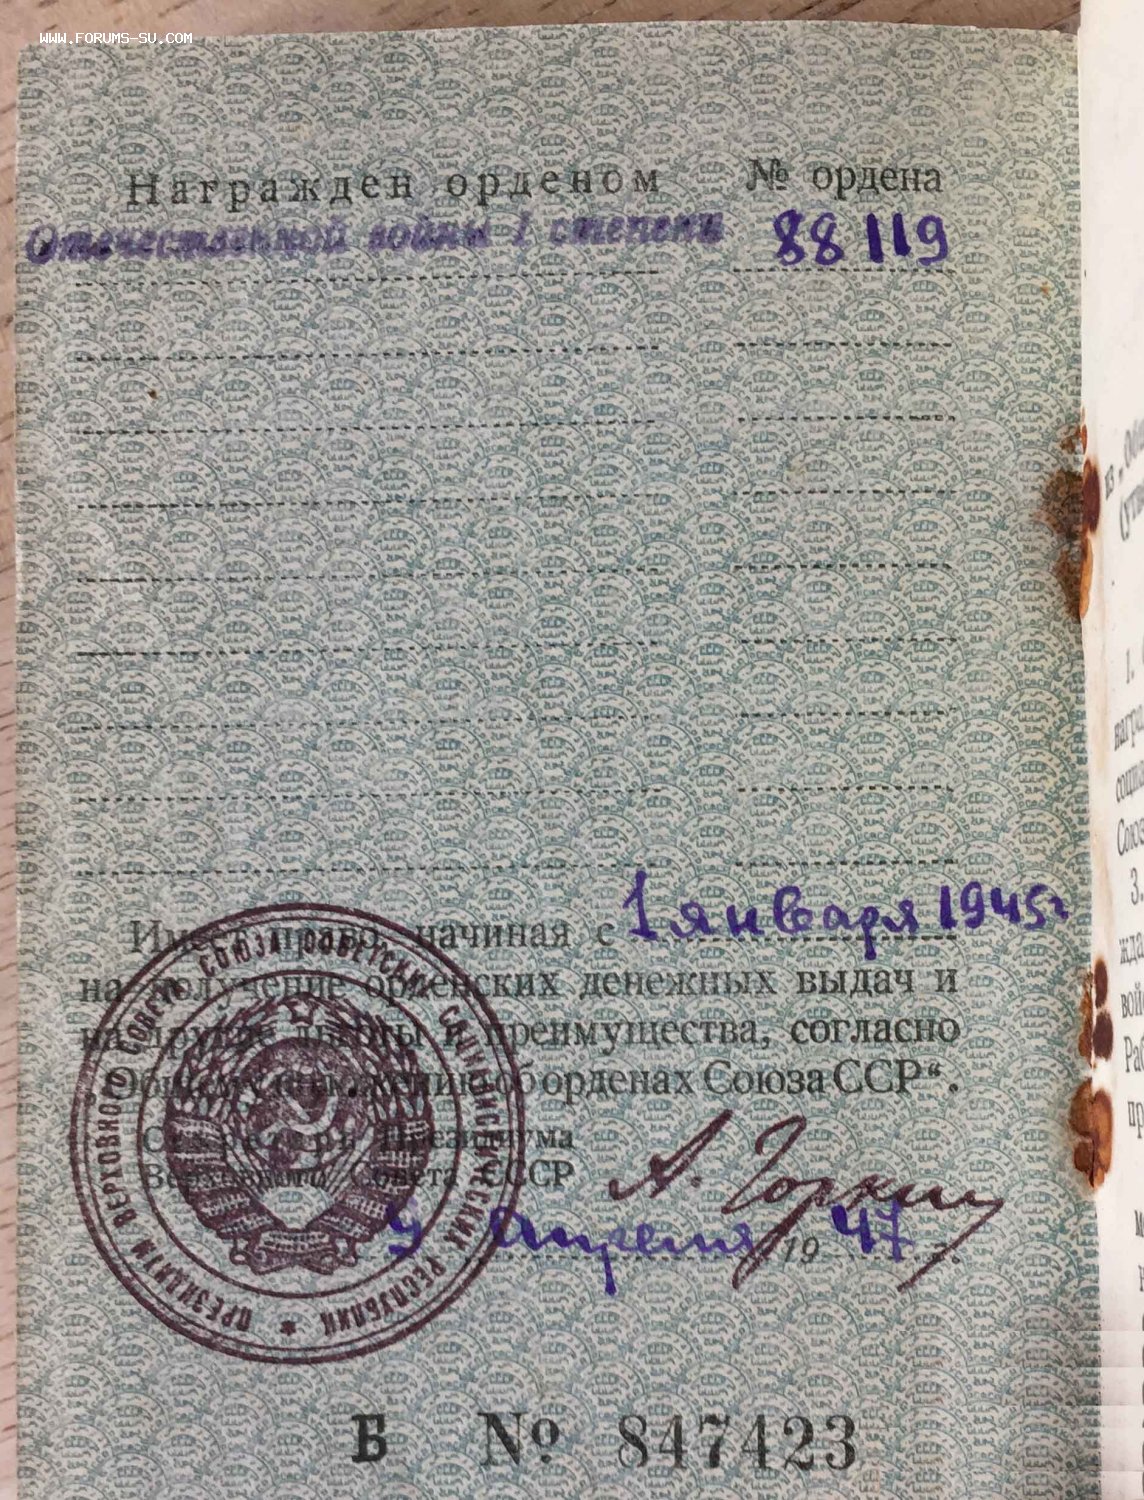 WWW.FORUMS-SU.COM
Награжден орденом № ордена
Отечественной войны I степени 88119
Имеет право, начиная с 1 января 1945г
на получение орденских денежных выдач и
на другие льготы и преимущества, согласно
„Общему положению об орденах Союза ССР“.
Секретарь Президиума
Верховного Совета СССР А. Горкин
апреля 1947
ПРЕЗИДИУМ ВЕРХОВНОГО СОВЕТА СОЮЗА СОВЕТСКИХ СОЦИАЛИСТИЧЕСКИХ РЕСПУБЛИК
Б № 847423
из
1.
Союз
3.